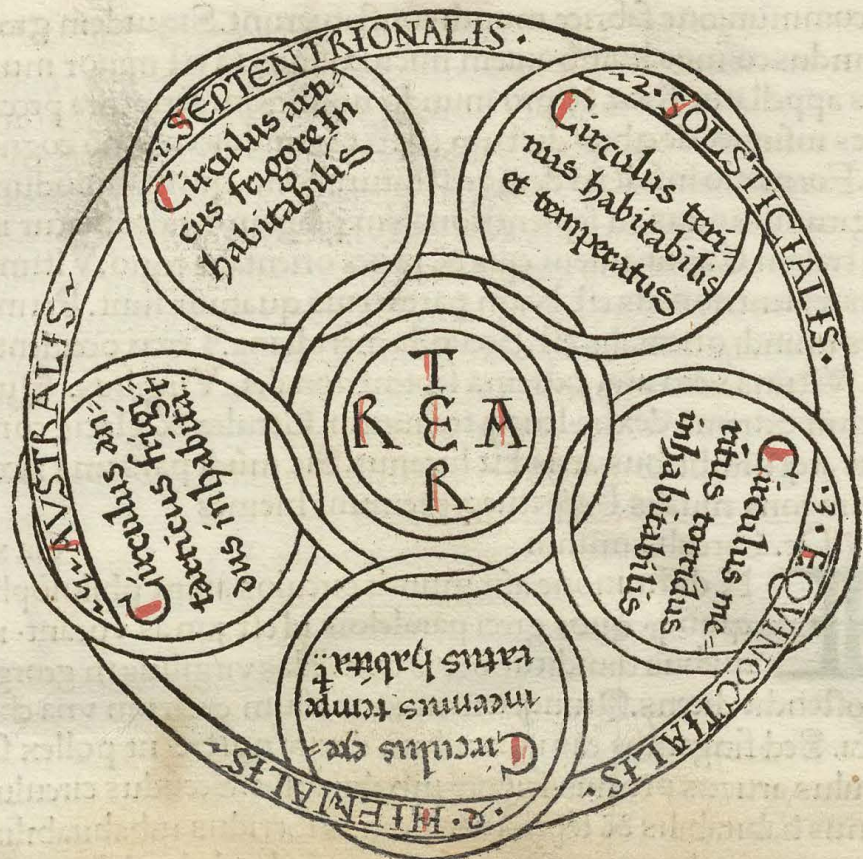 ·1· SEPTENTRIONALIS·
Circulus arti=
cus frigore In
habitabilis
·2· SOLSTICIALIS·
Circulus teri=
nus habitabilis
et temperatus
·3· EQVINOCTIALIS·
Circulus me=
rinus torridus
inhabitabilis
·2· HIEMALIS~
Circulus exe=
merinus tempe
ratus habita t̄
~4~ AVSTRALIS~
Circulus an=
tarticus frigi=
dus inhabita t̄
T
R E A
R